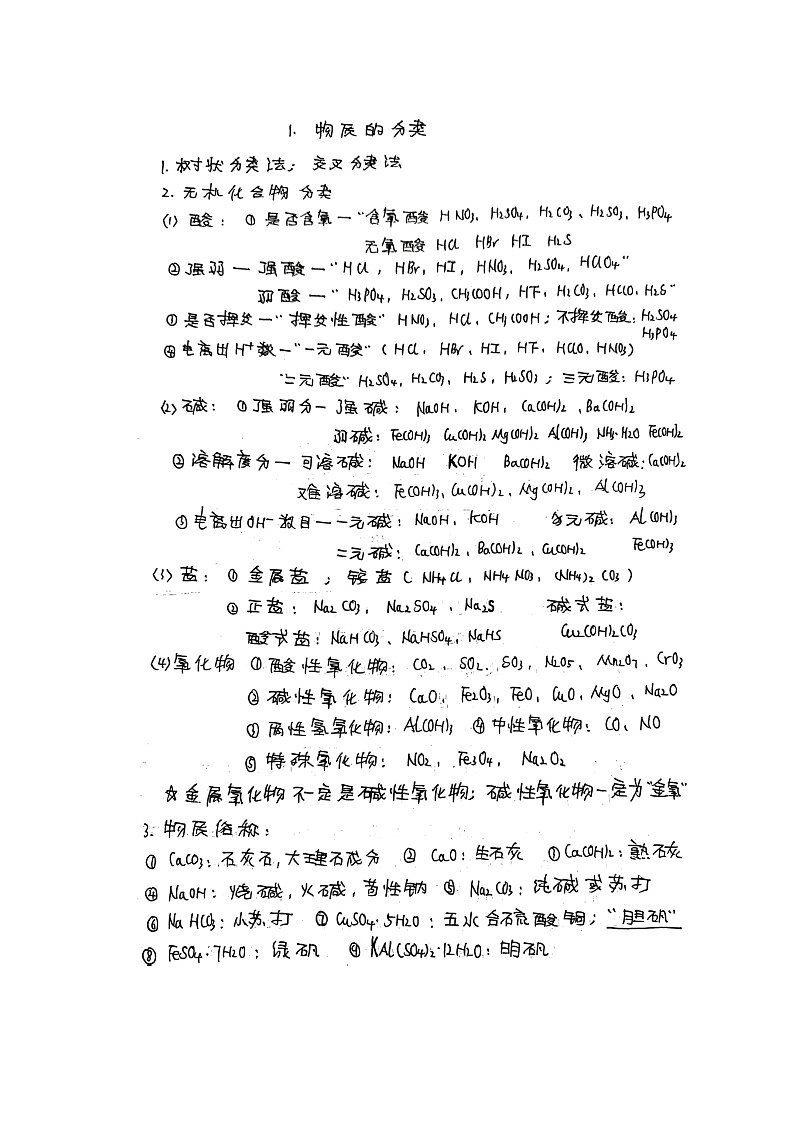 1. 物质的分类
1. 树状分类法; 交叉分类法
2. 无机化合物分类
(1) 酸: ① 是否含氧一"含氧酸 HNO3, H2SO4, H2CO3、H2SO3, H3PO4
无氧酸 HCl HBr HI H2S
②强弱一强酸一"HCl, HBr, HI, HNO3, H2SO4, HClO4"
弱酸一"H3PO4, H2SO3, CH3COOH, HF, H2CO3, HClO, H2S"
③是否挥发一"挥发性酸" HNO3, HCl, CH3COOH; 不挥发酸: H2SO4
H3PO4
④电离出H+数一"一元酸" (HCl, HBr, HI, HF, HClO, HNO3)
"二元酸" H2SO4, H2CO3, H2S, H2SO3; 三元酸: H3PO4
(2) 碱: ①强弱分一强碱: NaOH, KOH, Ca(OH)2, Ba(OH)2
弱碱: Fe(OH)3 Cu(OH)2 Mg(OH)2 Al(OH)3 NH3·H2O Fe(OH)2
②溶解度分一可溶碱: NaOH KOH Ba(OH)2 微溶碱: Ca(OH)2
难溶碱: Fe(OH)3, Cu(OH)2, Mg(OH)2, Al(OH)3
③电离出OH-数目一一元碱: NaOH, KOH 多元碱: Al(OH)3
二元碱: Ca(OH)2, Ba(OH)2, Cu(OH)2 Fe(OH)3
(3) 盐: ① 金属盐; 铵盐 (NH4Cl, NH4NO3, (NH4)2CO3)
② 正盐: Na2CO3, Na2SO4, Na2S 碱式盐:
酸式盐: NaHCO3, NaHSO4, NaHS Cu2(OH)2CO3
(4)氧化物 ①酸性氧化物: CO2, SO2, SO3, N2O5, Mn2O7, CrO3
② 碱性氧化物: CaO, Fe2O3, FeO, CuO, MgO, Na2O
③ 两性氢氧化物: Al(OH)3 ④中性氧化物: CO、NO
⑤ 特殊氧化物: NO2, Fe3O4, Na2O2
☆金属氧化物不一定是碱性氧化物; 碱性氧化物一定为"金氧"
3. 物质俗称:
① CaCO3: 石灰石, 大理石成分 ② CaO: 生石灰 ③ Ca(OH)2: 熟石灰
④ NaOH: 烧碱, 火碱, 苛性钠 ⑤ Na2CO3: 纯碱或苏打
⑥ NaHCO3: 小苏打 ⑦ CuSO4·5H2O: 五水合硫酸铜; "胆矾"
⑧ FeSO4·7H2O: 绿矾 ⑨ KAl(SO4)2·12H2O: 明矾